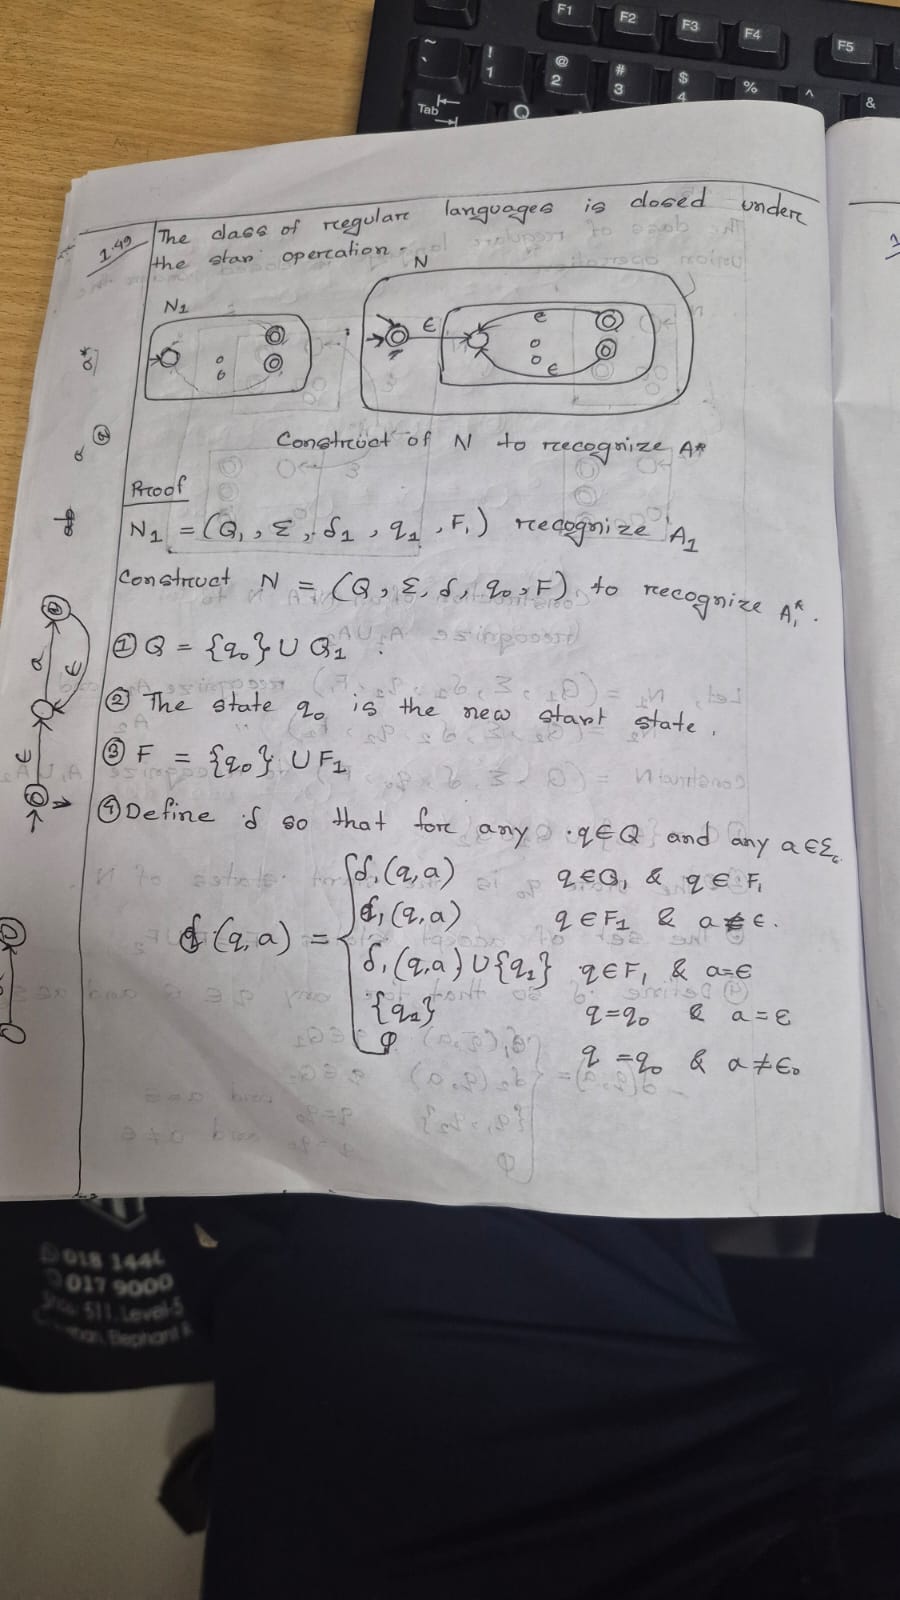 F1
F2
F3
F4
F5
~
!
1
@
2
#
3
$
4
%
^
&
Tab
Q
1.49 The class of regular languages is closed under
the star operation.
N1
N
ε
ε
ε
Construct of N to recognize A*
a*
a
ab
a
ε
ε
Proof
N1 = (Q1, Σ, δ1, q1, F1) recognize A1
Construct N = (Q, Σ, δ, q0, F) to recognize A1*.
① Q = {q0} ∪ Q1
② The state q0 is the new start state.
③ F = {q0} ∪ F1
④ Define δ so that for any q∈Q and any a∈Σε
δ1(q,a) q∈Q1 & q∈F1
δ1(q,a) q∈F1 & a≠ε.
δ(q,a) =
δ1(q,a) ∪ {q1} q∈F1 & a=ε
{q1} q=q0 & a=ε
φ q=q0 & a≠ε.
018 144
017 9000
511, Level-5
Elephant R